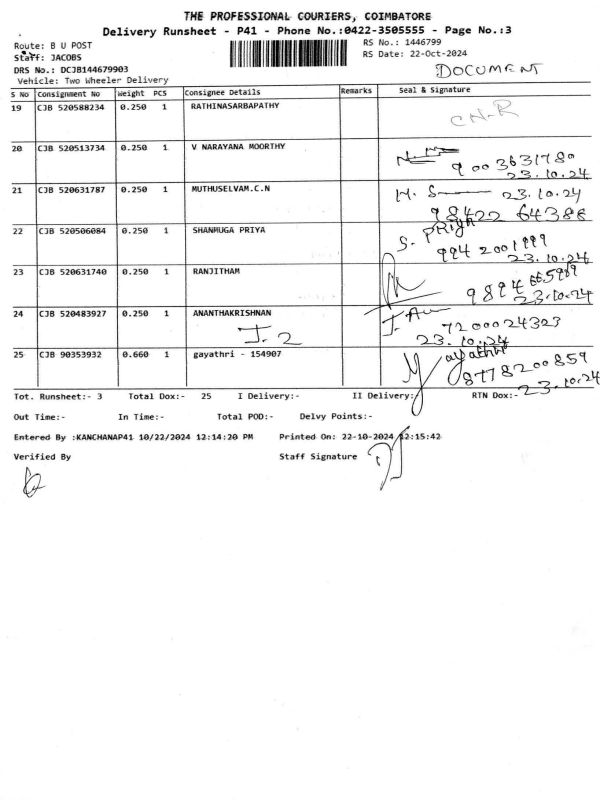 THE PROFESSIONAL COURIERS, COIMBATORE
Delivery Runsheet - P41 - Phone No.:0422-3505555 - Page No.:3
Route: B U POST
RS No.: 1446799
Staff: JACOBS
RS Date: 22-Oct-2024
DRS No.: DCJB144679903
DOCUMENT
Vehicle: Two Wheeler Delivery
S No Consignment No Weight PCS Consignee Details Remarks Seal & Signature
19 CJB 520588234 0.250 1 RATHINASARBAPATHY
CN-R
20 CJB 520513734 0.250 1 V NARAYANA MOORTHY
9003631780
23.10.24
21 CJB 520631787 0.250 1 MUTHUSELVAM.C.N
23.10.24
98422 64386
22 CJB 520506084 0.250 1 SHANMUGA PRIYA
S. PRiya
994 2001999
23.10.24
23 CJB 520631740 0.250 1 RANJITHAM
9894665989
23.10.24
24 CJB 520483927 0.250 1 ANANTHAKRISHNAN
J. 2
7200024323
23.10.24
25 CJB 90353932 0.660 1 gayathri - 154907
gayathri
8778200859
23.10.24
Tot. Runsheet:- 3 Total Dox:- 25 I Delivery:- II Delivery:- RTN Dox:-
Out Time:- In Time:- Total POD:- Delvy Points:-
Entered By :KANCHANAP41 10/22/2024 12:14:20 PM Printed On: 22-10-2024 12:15:42
Verified By Staff Signature